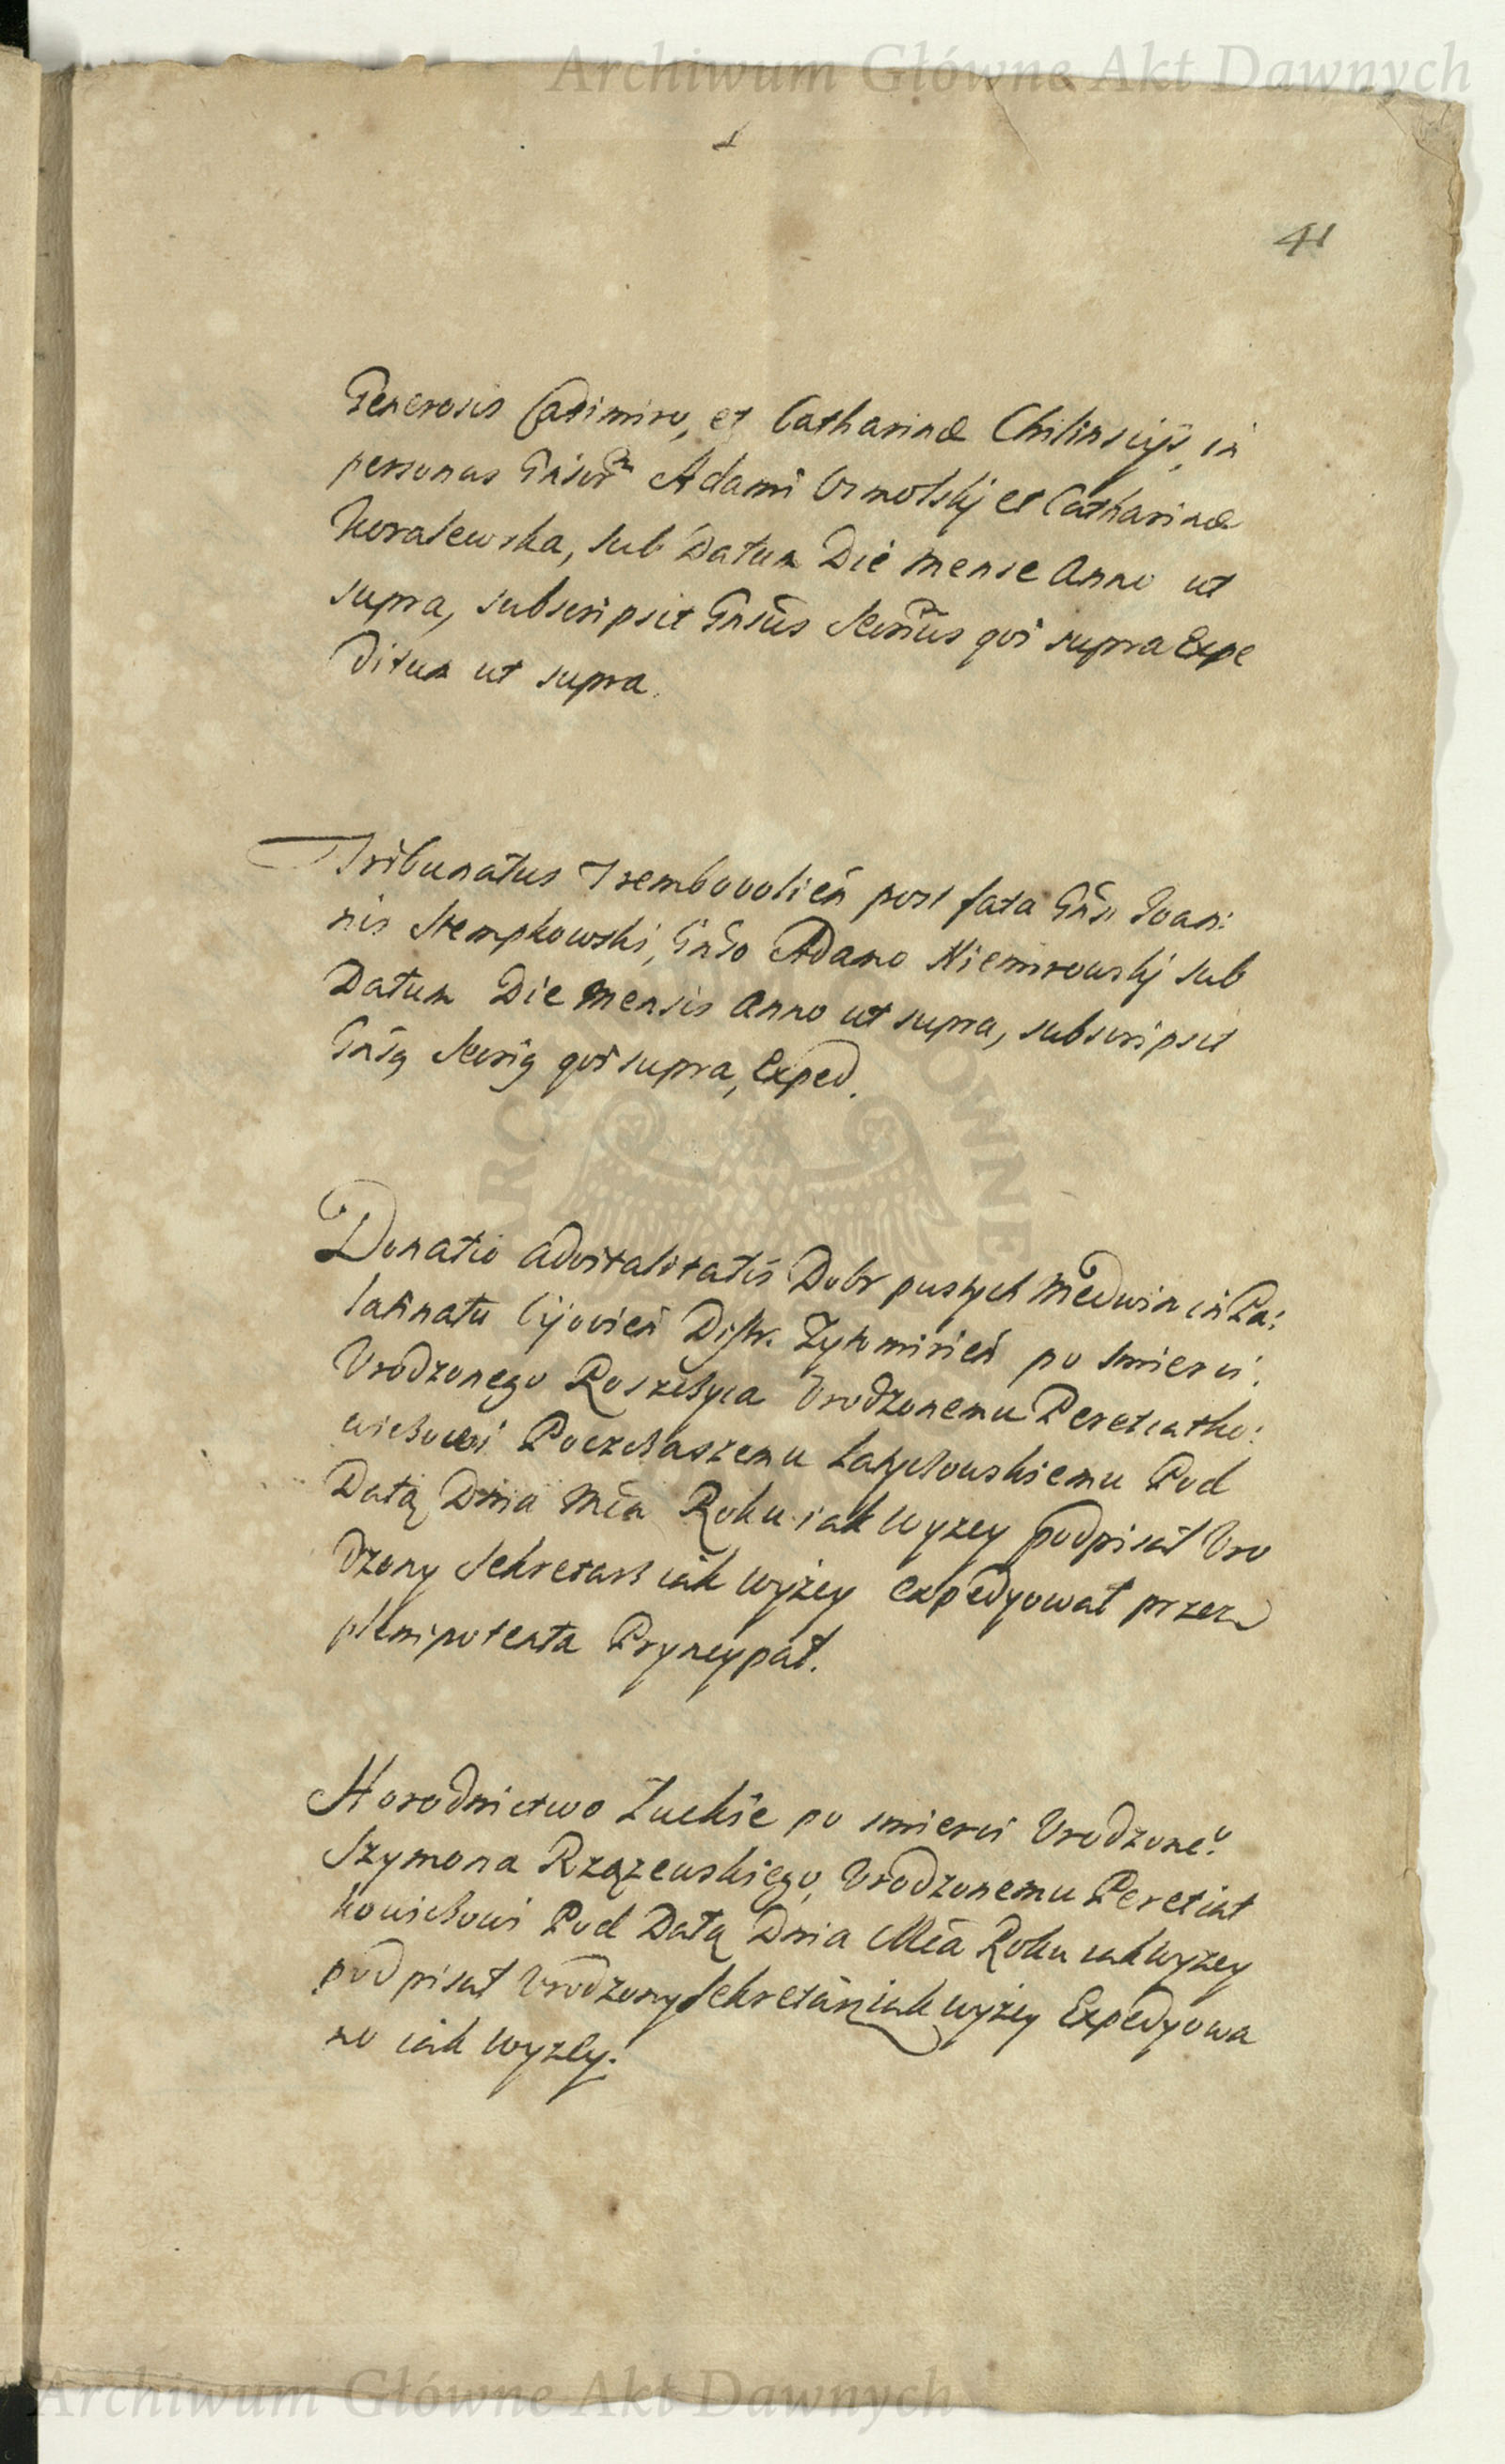 Archiwum Główne Akt Dawnych
1
41
Generosis Casimiro, et Catharinæ Chilinscijs, in
personas Gnsor͠m Adami et Catharinæ
sub Datum Die mense Anno ut
supra, subscripsit Gnsũs Secrius qui supra Expe
ditum ut supra.
Tribunatus Trembovolien̄ post fata Gñsi Joan:
nis Stempkowski, Gnso Adamo Niemirowskj sub
Datum Die Mensis Anno ut supra, subscripsit
Gnsq Secriq qui supra, Exped.
Donatio advitalitatis Dobr pustych Medwin in Pa:
latinatu Cijovien̄ Distr. Zytomirien̄ po smierci
Urodzonego Urodzonemu Peretiatko:
wiczowi Podczaszemu Latyczowskiemu Pod
Datą Dnia Mca Roku iak wyzey podpisał Uro
dzony Sekretarz iak wyżey expedyował przez
plenipotenta Pryncypał.
Horodnictwo Łuckie po smierci Urodzoneº
Szymona Rzązewskiego, Urodzonemu Peretiat
kowiczowi Pod Datą Dnia Mca Roku iak wyzey
podpisał Urodzony Sekretarz iak wyżey Expedyowa
no iak wyzey.
ARCHIWUM GŁÓWNE
Archiwum Główne Akt Dawnych